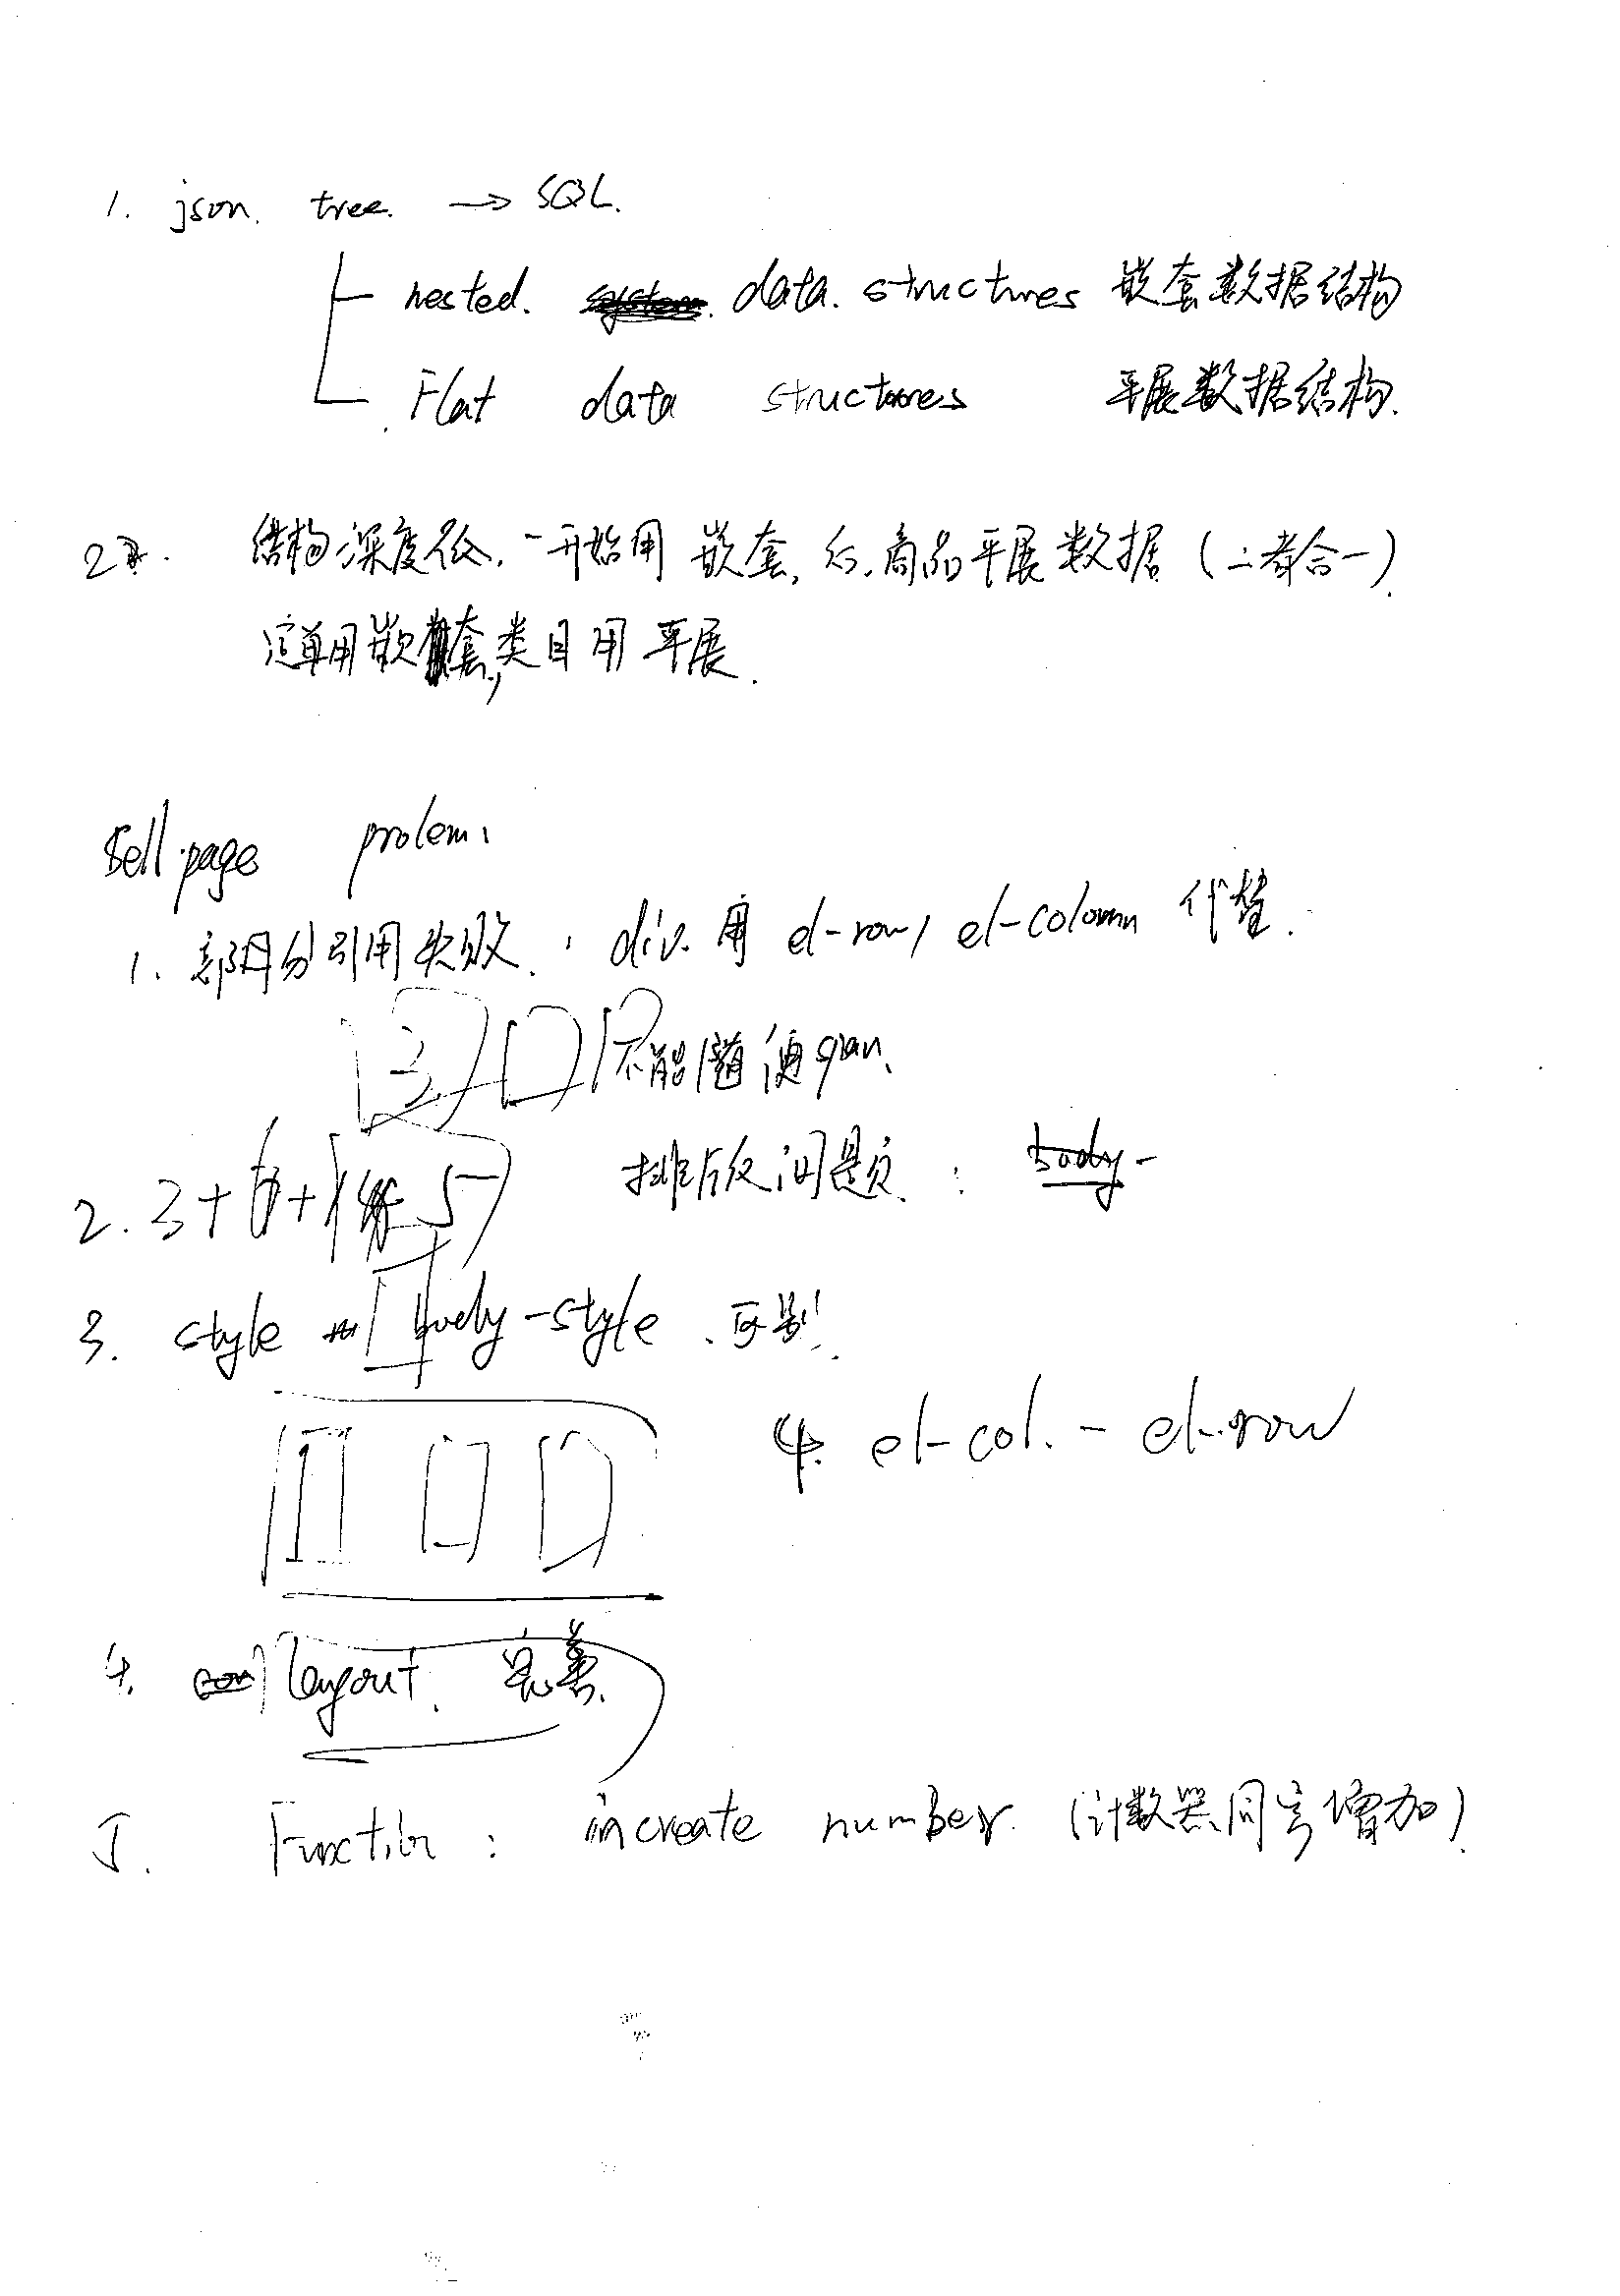 1. json. tree. → SQL.
nested. data. structures 嵌套数据结构
Flat data structures 平展数据结构.
2. 结构深度低, 一开始用 嵌套, 后, 商品平展数据 (二者合一).
订单用嵌套, 类目用 平展.
Sell page prolem:
1. 部分引用失败. : div. 用 el-row, el-column 代替.
不能随便span.
2. 3+ 5 排版问题. : body-
3. style body-style. 区别.
4. el-col. - el-row
4. layout. 完善.
5. Function: increate number. (计数器同号增加).